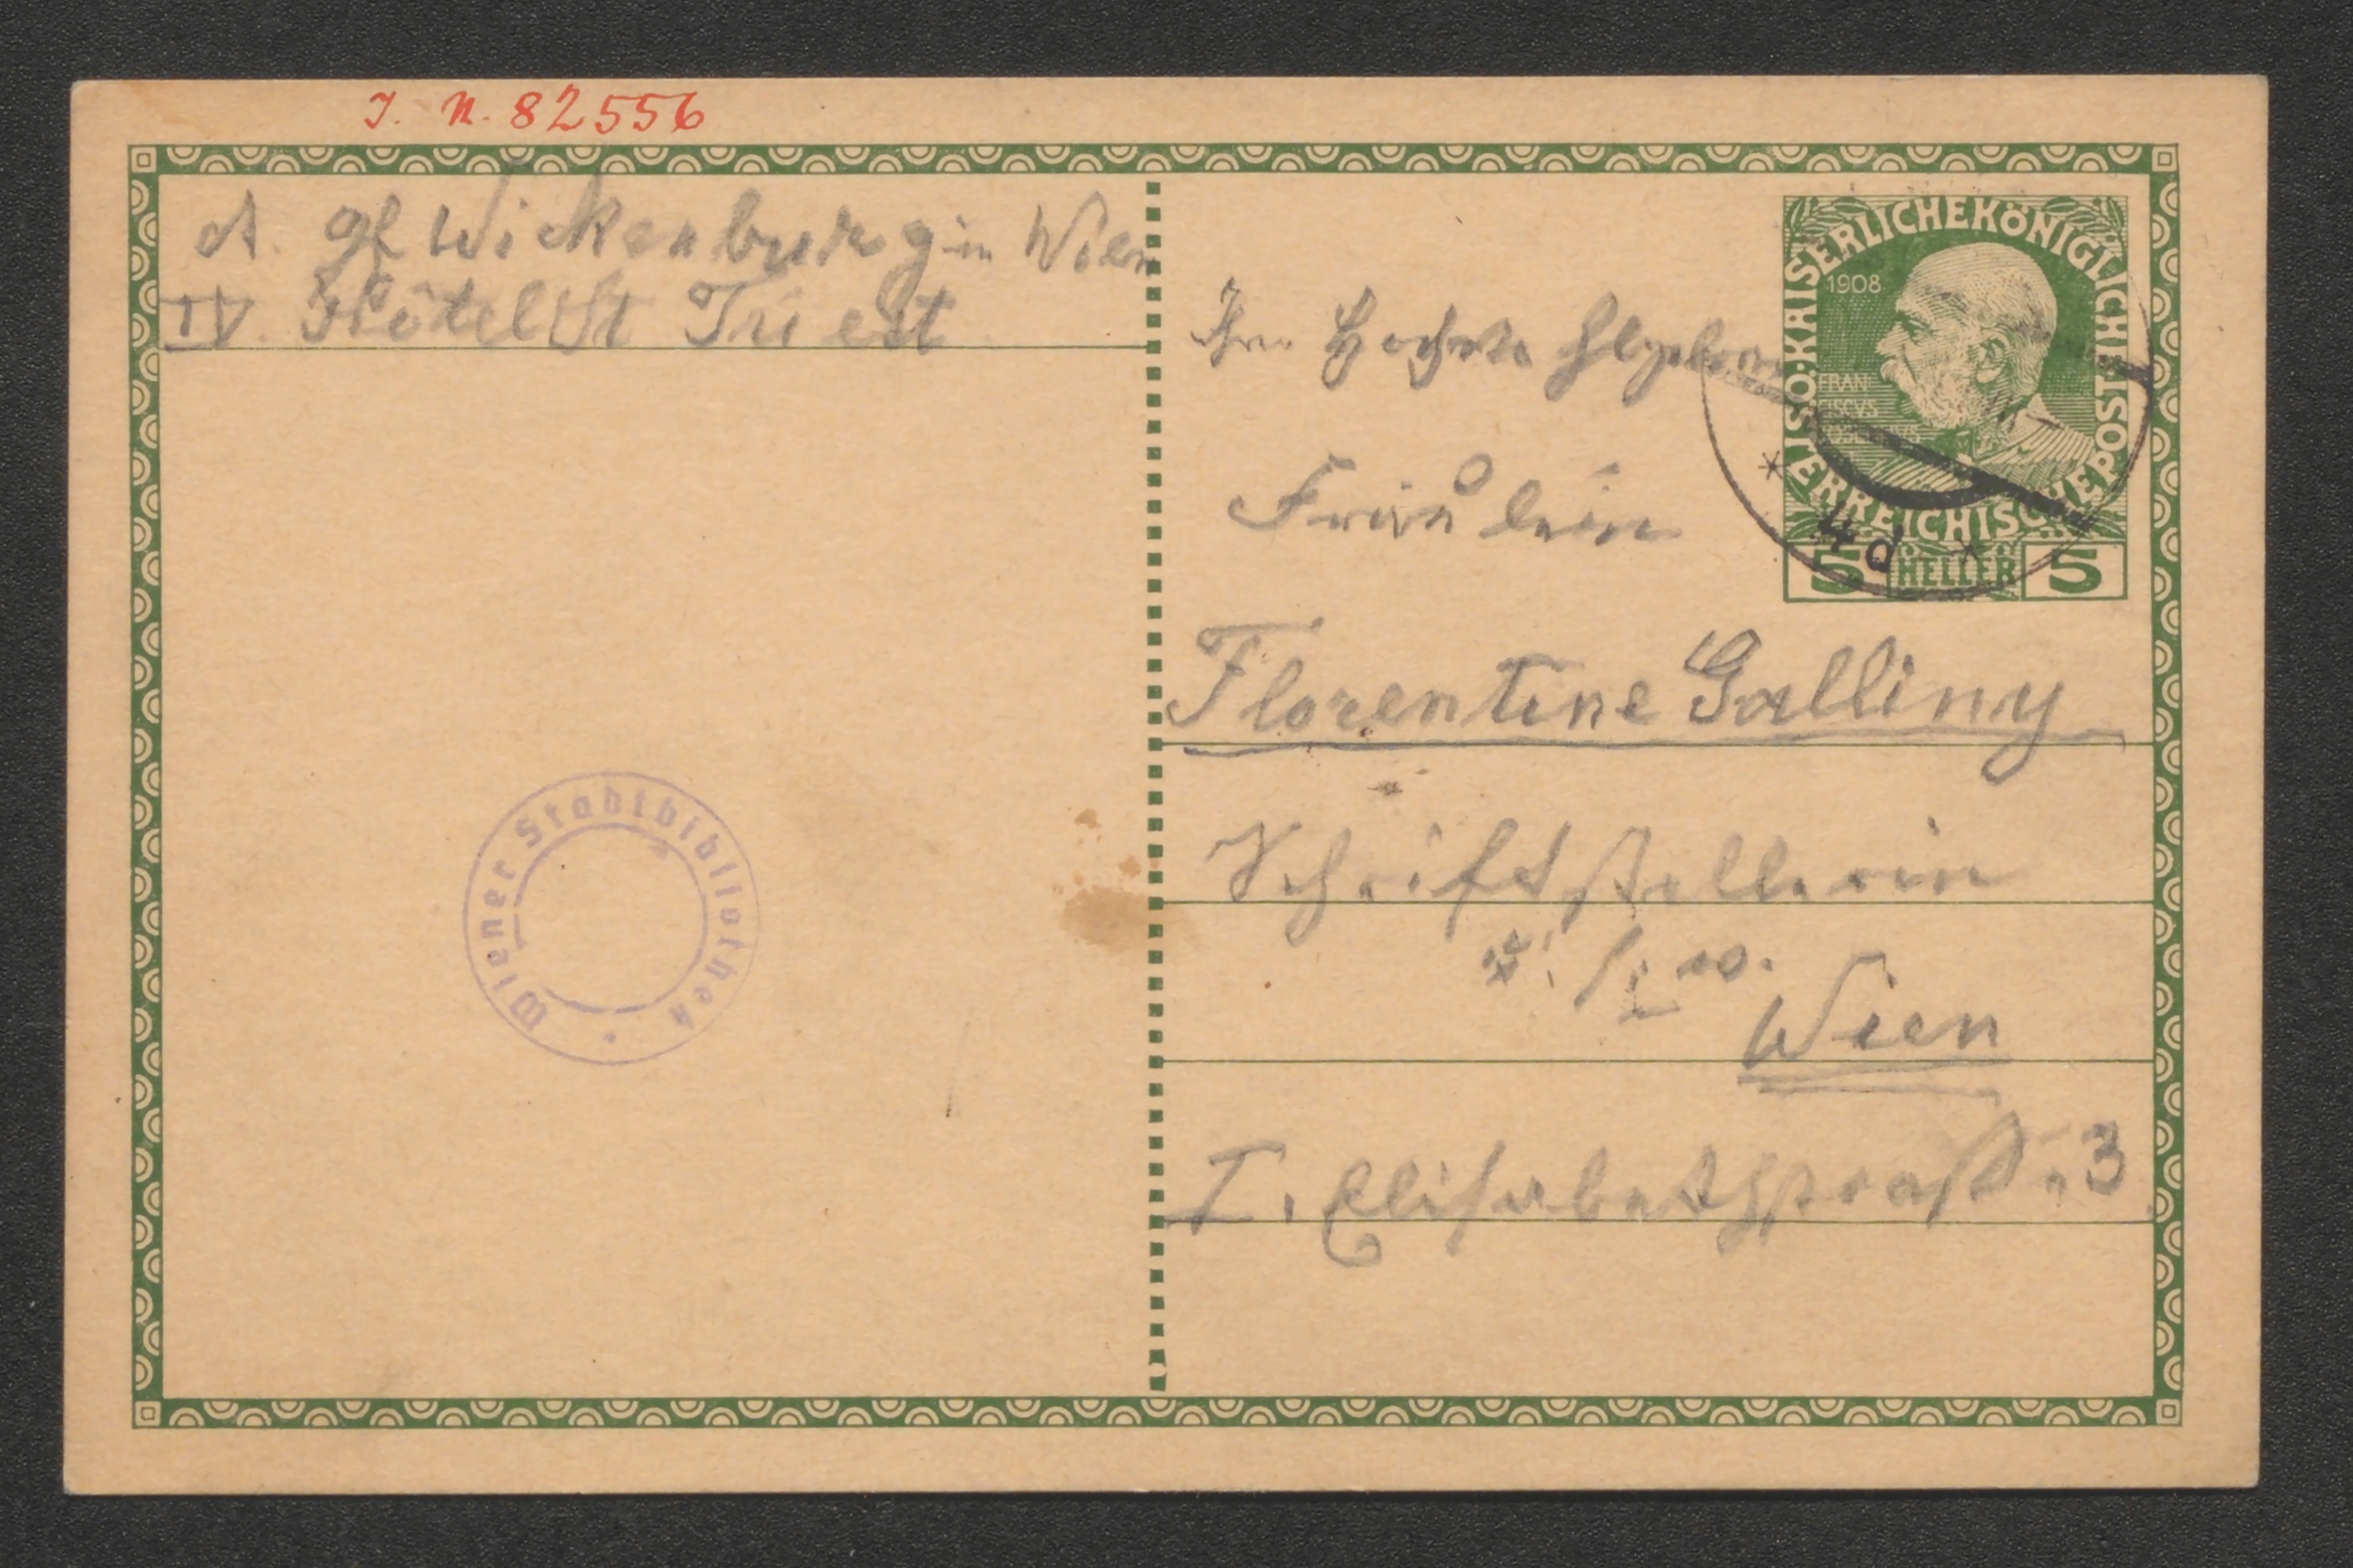 J. N. 82556
A. Gf Wickenburg in Wien
IV. Hôtel St Triest
KAISERLICHEKÖNIGLICHE
ÖSTERREICHISCHE POST
1908
FRAN
CISCVS
5 HELLER 5
* 4d *
Ihre Hochw.
Fräulein
Florentine Galliny
Schriftstellerin
Wien
I. Elisabethstraße 3
Wiener Stadtbibliothek